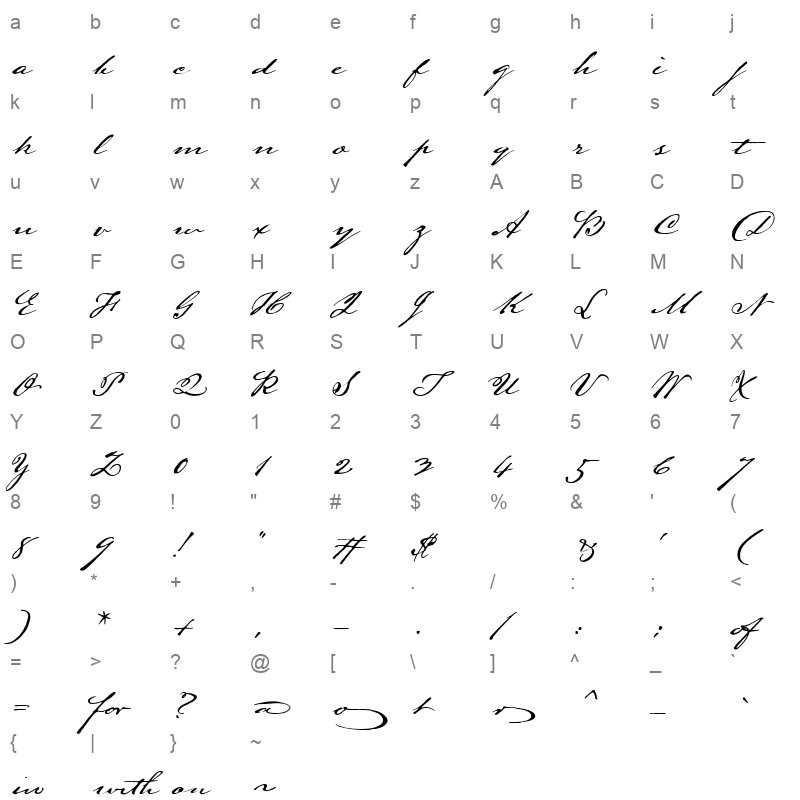 a b c d e f g h i j
a b c d e f g h i j
k l m n o p q r s t
k l m n o p q r s t
u v w x y z A B C D
u v w x y z A B C D
E F G H I J K L M N
E F G H I J K L M N
O P Q R S T U V W X
O P Q R S T U V W X
Y Z 0 1 2 3 4 5 6 7
Y Z 0 1 2 3 4 5 6 7
8 9 ! " # $ % & ' (
8 9 ! " # $ & ' (
) * + , - . / : ; <
) * + , - . / : ; of
= > ? @ [ \ ] ^ _ `
= for ? a o t r ^ _ `
{ | } ~
in with on r